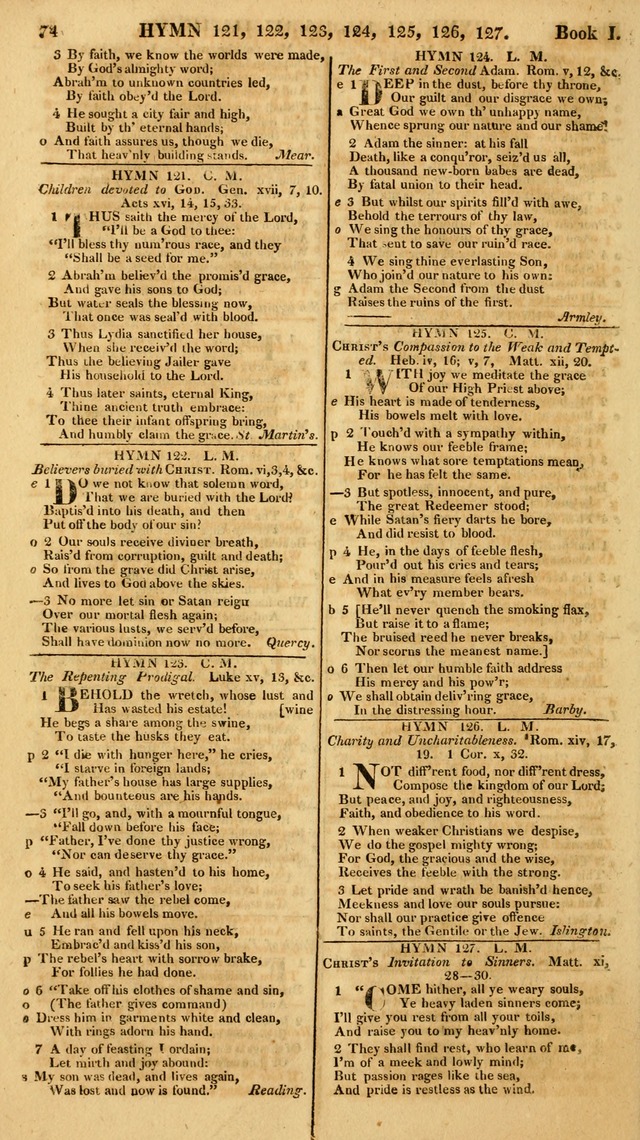 74 HYMN 121, 122, 123, 124, 125, 126, 127. Book I.
3 By faith, we know the worlds were made,
By God's almighty word;
Abrah'm to unknown countries led,
By faith obey'd the Lord.
4 He sought a city fair and high,
Built by th' eternal hands;
o And faith assures us, though we die,
That heav'nly building stands. Mear.
HYMN 121. C. M.
Children devoted to GOD. Gen. xvii, 7, 10.
Acts xvi, 14, 15, 33.
1 THUS saith the mercy of the Lord,
"I'll be a God to thee:
"I'll bless thy num'rous race, and they
"Shall be a seed for me."
2 Abrah'm believ'd the promis'd grace,
And gave his sons to God;
But water seals the blessing now,
That once was seal'd with blood.
3 Thus Lydia sanctified her house,
When she receiv'd the word;
Thus the believing Jailer gave
His household to the Lord.
4 Thus later saints, eternal King,
Thine ancient truth embrace:
To thee their infant offspring bring,
And humbly claim the grace. St. Martin's.
HYMN 122. L. M.
Believers buried with CHRIST. Rom. vi,3,4, &c.
e 1 DO we not know that solemn word,
That we are buried with the Lord?
Baptis'd into his death, and then
Put off the body of our sin?
o 2 Our souls receive diviner breath,
Rais'd from corruption, guilt and death;
o So from the grave did Christ arise,
And lives to God above the skies.
—3 No more let sin or Satan reign
Over our mortal flesh again;
The various lusts, we serv'd before,
Shall have dominion now no more. Quercy.
HYMN 123. C. M.
The Repenting Prodigal. Luke xv, 13, &c.
1 BEHOLD the wretch, whose lust and
Has wasted his estate! [wine
He begs a share among the swine,
To taste the husks they eat.
p 2 "I die with hunger here," he cries,
"I starve in foreign lands;
"My father's house has large supplies,
"And bounteous are his hands.
—3 "I'll go, and, with a mournful tongue,
"Fall down before his face;
p "Father, I've done thy justice wrong,
"Nor can deserve thy grace."
o 4 He said, and hasten'd to his home,
To seek his father's love;
—The father saw the rebel come,
e And all his bowels move.
u 5 He ran and fell upon his neck,
Embrac'd and kiss'd his son,
p The rebel's heart with sorrow brake,
For follies he had done.
o 6 "Take off his clothes of shame and sin,
o (The father gives command)
o Dress him in garments white and clean,
With rings adorn his hand.
7 A day of feasting I ordain;
Let mirth and joy abound:
s My son was dead, and lives again,
Was lost and now is found." Reading.
HYMN 124. L. M.
The First and Second Adam. Rom. v, 12, &c.
e 1 DEEP in the dust, before thy throne,
Our guilt and our disgrace we own;
a Great God we own th' unhappy name,
Whence sprung our nature and our shame!
2 Adam the sinner: at his fall
Death, like a conqu'ror, seiz'd us all,
A thousand new-born babes are dead,
By fatal union to their head.
e 3 But whilst our spirits fill'd with awe,
Behold the terrours of thy law,
o We sing the honours of thy grace,
That sent to save our ruin'd race.
4 We sing thine everlasting Son,
Who join'd our nature to his own:
g Adam the Second from the dust
Raises the ruins of the first.
Armley.
HYMN 125. C. M.
CHRIST'S Compassion to the Weak and Tempt-
ed. Heb. iv, 16; v, 7, Matt. xii, 20.
1 WITH joy we meditate the grace
Of our High Priest above;
e His heart is made of tenderness,
His bowels melt with love.
p 2 Touch'd with a sympathy within,
He knows our feeble frame;
He knows what sore temptations mean,
For he has felt the same.
—3 But spotless, innocent, and pure,
The great Redeemer stood;
e While Satan's fiery darts he bore,
And did resist to blood.
p 4 He, in the days of feeble flesh,
Pour'd out his cries and tears;
e And in his measure feels afresh
What ev'ry member bears.
b 5 [He'll never quench the smoking flax,
But raise it to a flame;
The bruised reed he never breaks,
Nor scorns the meanest name.]
o 6 Then let our humble faith address
His mercy and his pow'r;
o We shall obtain deliv'ring grace,
In the distressing hour. Barby.
HYMN 126. L. M.
Charity and Uncharitableness. Rom. xiv, 17,
19. 1 Cor. x, 32.
1 NOT diff'rent food, nor diff'rent dress,
Compose the kingdom of our Lord;
But peace, and joy, and righteousness,
Faith, and obedience to his word.
2 When weaker Christians we despise,
We do the gospel mighty wrong;
For God, the gracious and the wise,
Receives the feeble with the strong.
3 Let pride and wrath be banish'd hence,
Meekness and love our souls pursue:
Nor shall our practice give offence
To saints, the Gentile or the Jew. Islington.
HYMN 127. L. M.
CHRIST'S Invitation to Sinners. Matt. xi,
28—30.
1 "COME hither, all ye weary souls,
Ye heavy laden sinners come;
I'll give you rest from all your toils,
And raise you to my heav'nly home.
2 They shall find rest, who learn of me,
I'm of a meek and lowly mind;
But passion rages like the sea,
And pride is restless as the wind.